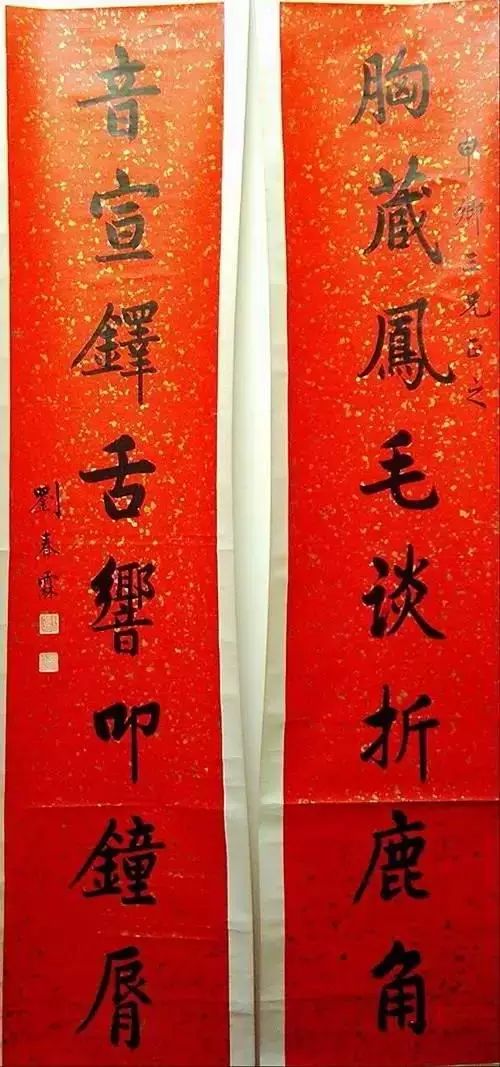 申卿三兄正之
胸蔵鳳毛谈折鹿角
音宣鐸舌響叩鐘脣
劉春霖